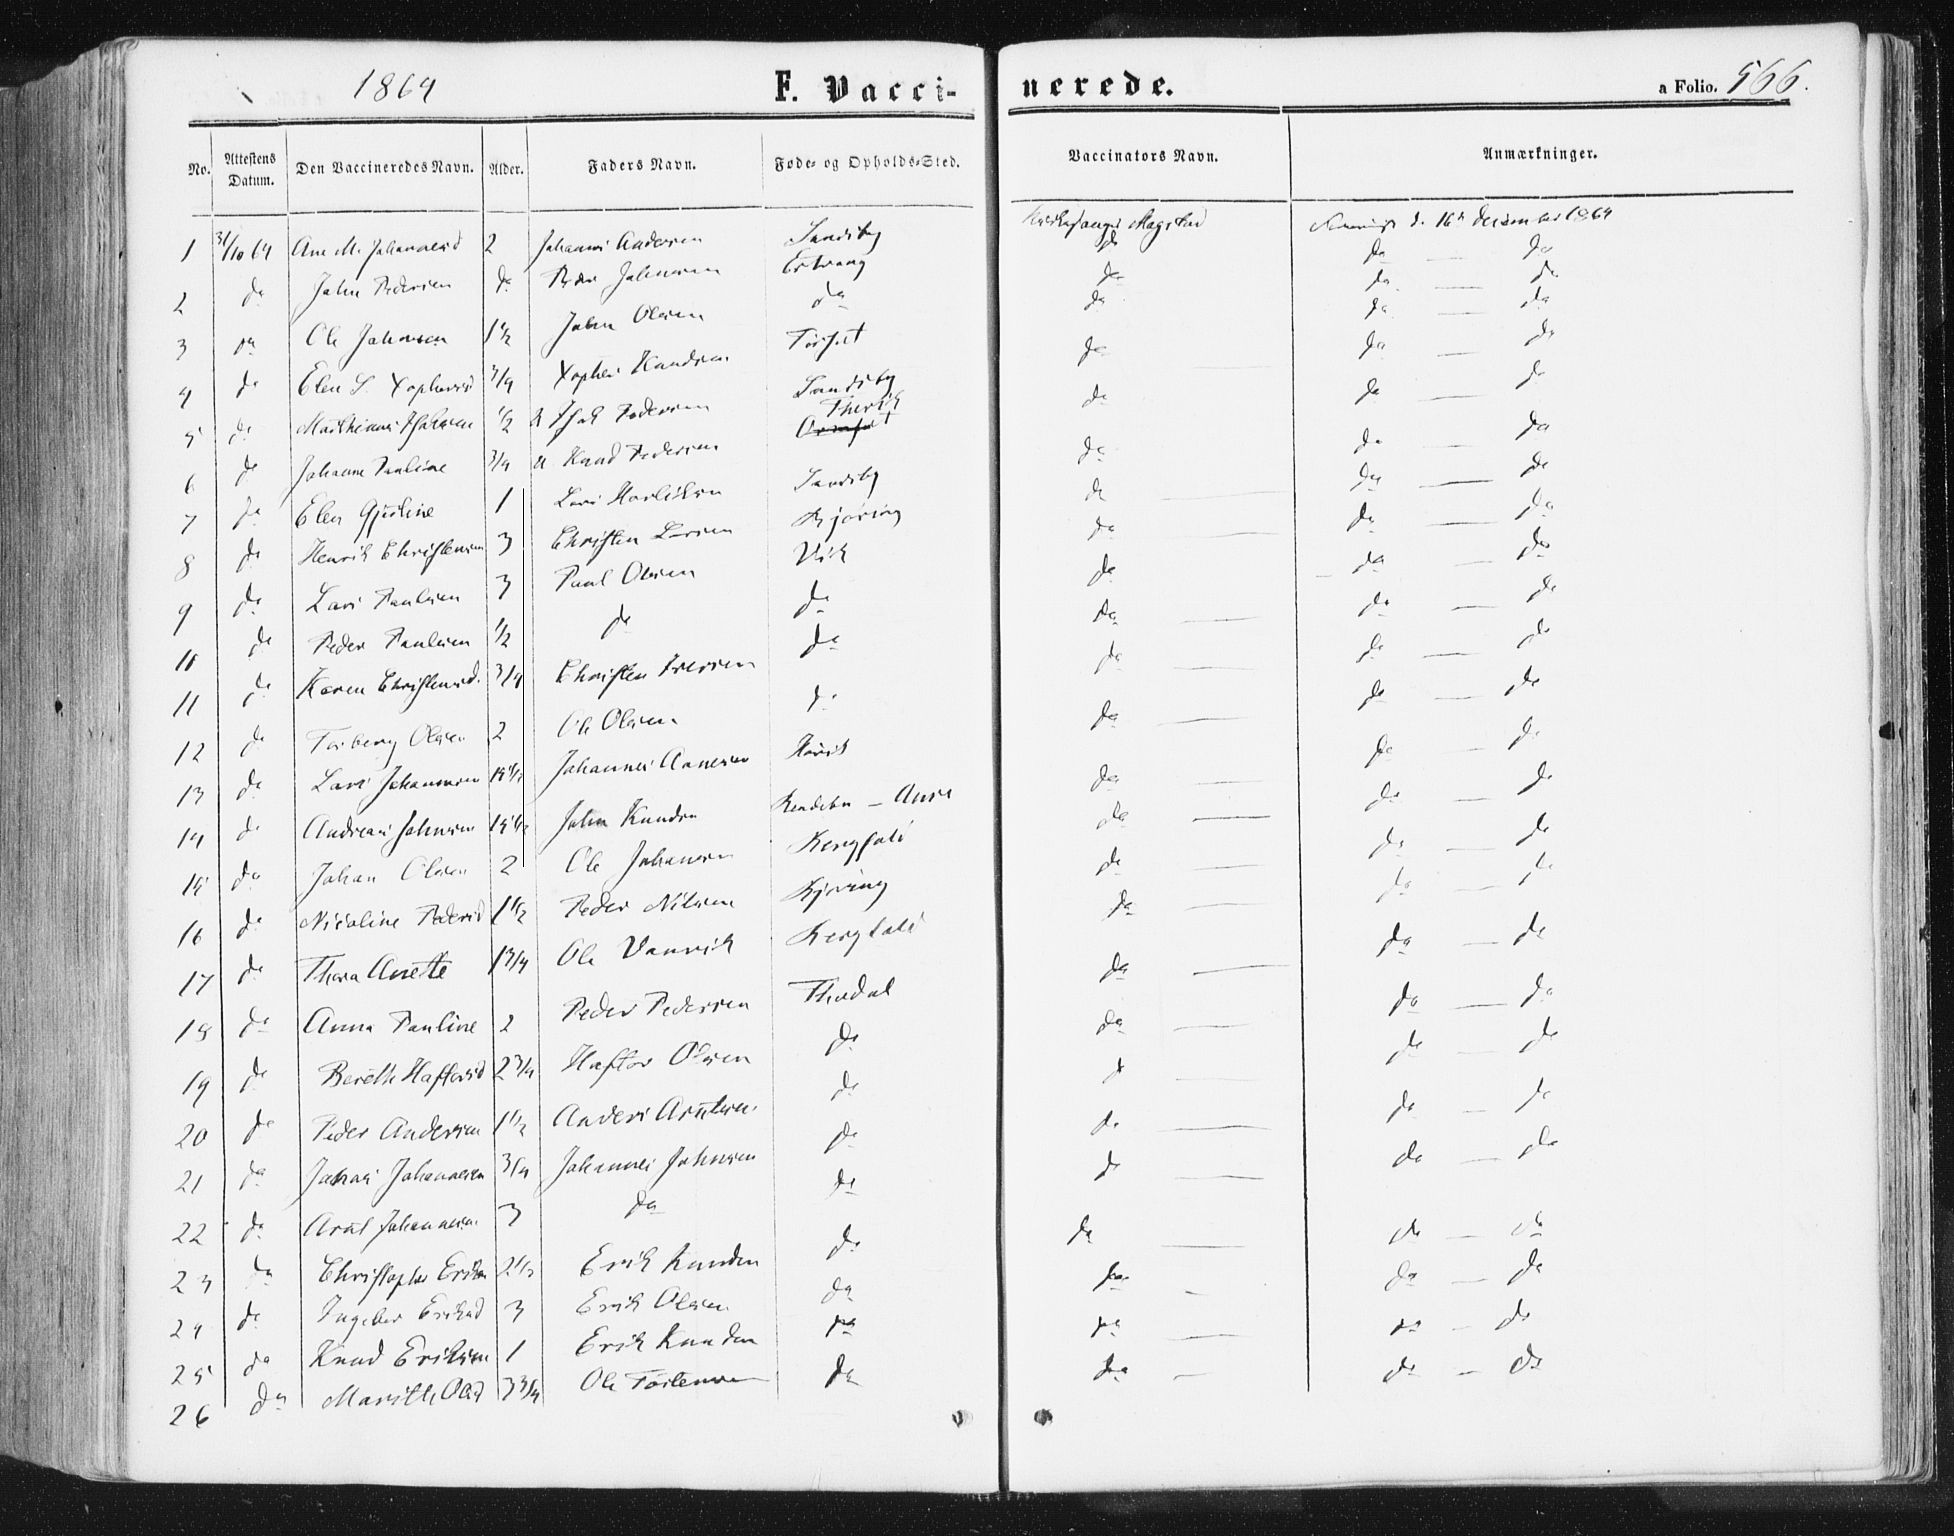 1864 F. Vacci- nerede. a Folio. 566.
No. Attestens Datum. Den Vaccineredes Navn. Alder. Faders Navn. Føde- og Opholds-Sted. Vaccinators Navn. Anmærkninger.
1 31/10 64 Ane M. Johannesd 2 Johannes Andersen Sandsby Magstad d. 16de December 1864
2 do John Pedersen do Peder Johnsen do do do
3 do Ole Johnsen 1 1/2 John Olsen do do do do
4 do Elen S. Xophersd 3/4 Xopher Knudsen do do do
5 do Mathias 1/2 Pedersen Sandsby do do do
6 do Johanne Pauline 3/4 Knud Pedersen do do do
7 do Elen Gjertine 1 Lars Sandsby do do do
8 do Henrik Christensen 3 Christen Larsen Kjøring do do do
9 do Lars Paulsen 3 Paul Olsen Vik do do do
10 do Peder Paulsen 1/2 do do do do do
11 do Karen Christensd. 3/4 Christen Iversen do do do do
12 do Torberg Olsen 2 Ole Olsen do do do do
13 do Lars Johannesen Johannes do do do
14 do Andreas Johnsen John Knudsen Aure do do do
15 do Johan Olsen 2 Ole Johansen do do do
16 do Nicoline Pedersd 1 1/2 Peder Nilsen Kjøring do do do
17 do Thora Anette 1 3/4 Ole Vanvik do do do
18 do Anna Pauline 2 Peder Pedersen Thodal do do do
19 do Berith Haftorsd 2 3/4 Haftor Olsen do do do do
20 do Peder Andersen 1 1/2 Anders Arntsen do do do do
21 do Johannesen 3/4 Johannes Johnsen do do do do
22 do Arnt Johannesen 3 do do do do do
23 do Christopher Eriksen 2 1/2 Erik Knudsen do do do do
24 do Ingebor Eriksd 3 Erik Olsen do do do do
25 do Knud Eriksen 1 Erik Knudsen do do do do
26 do Marith Olsd 3 3/4 Ole do do do do